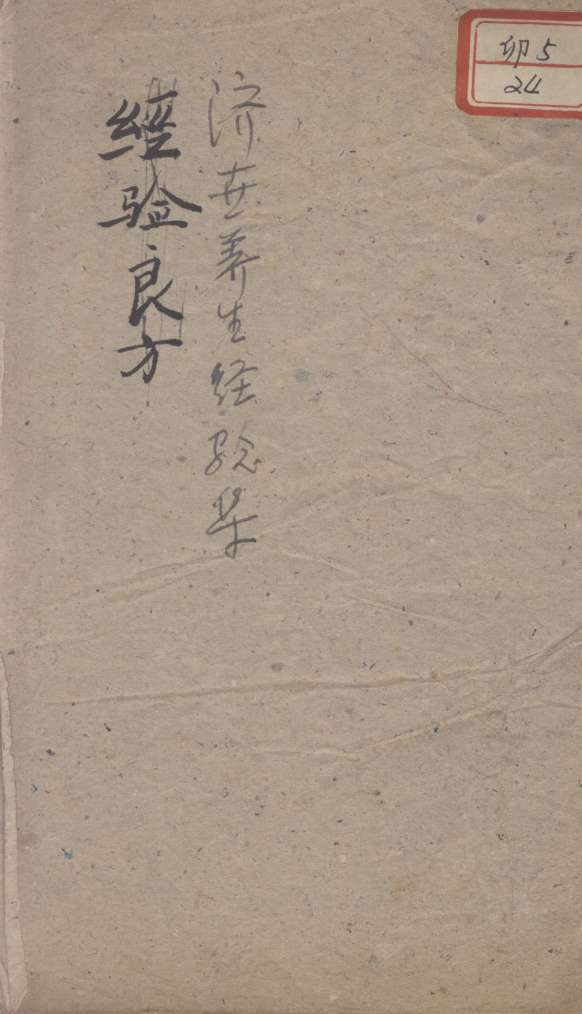 卯5
24
济世养生经验集
經验良方